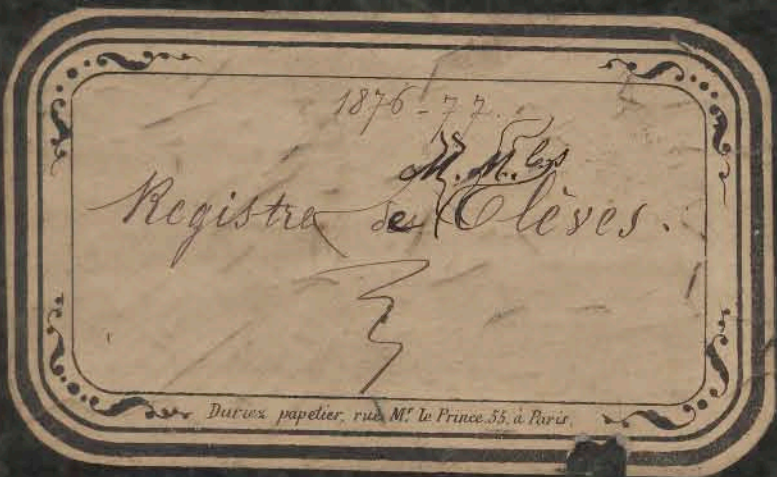 1876-77.
M. M. les
Registre des Elèves.
Duriez papetier, rue Mr le Prince.55. à Paris.